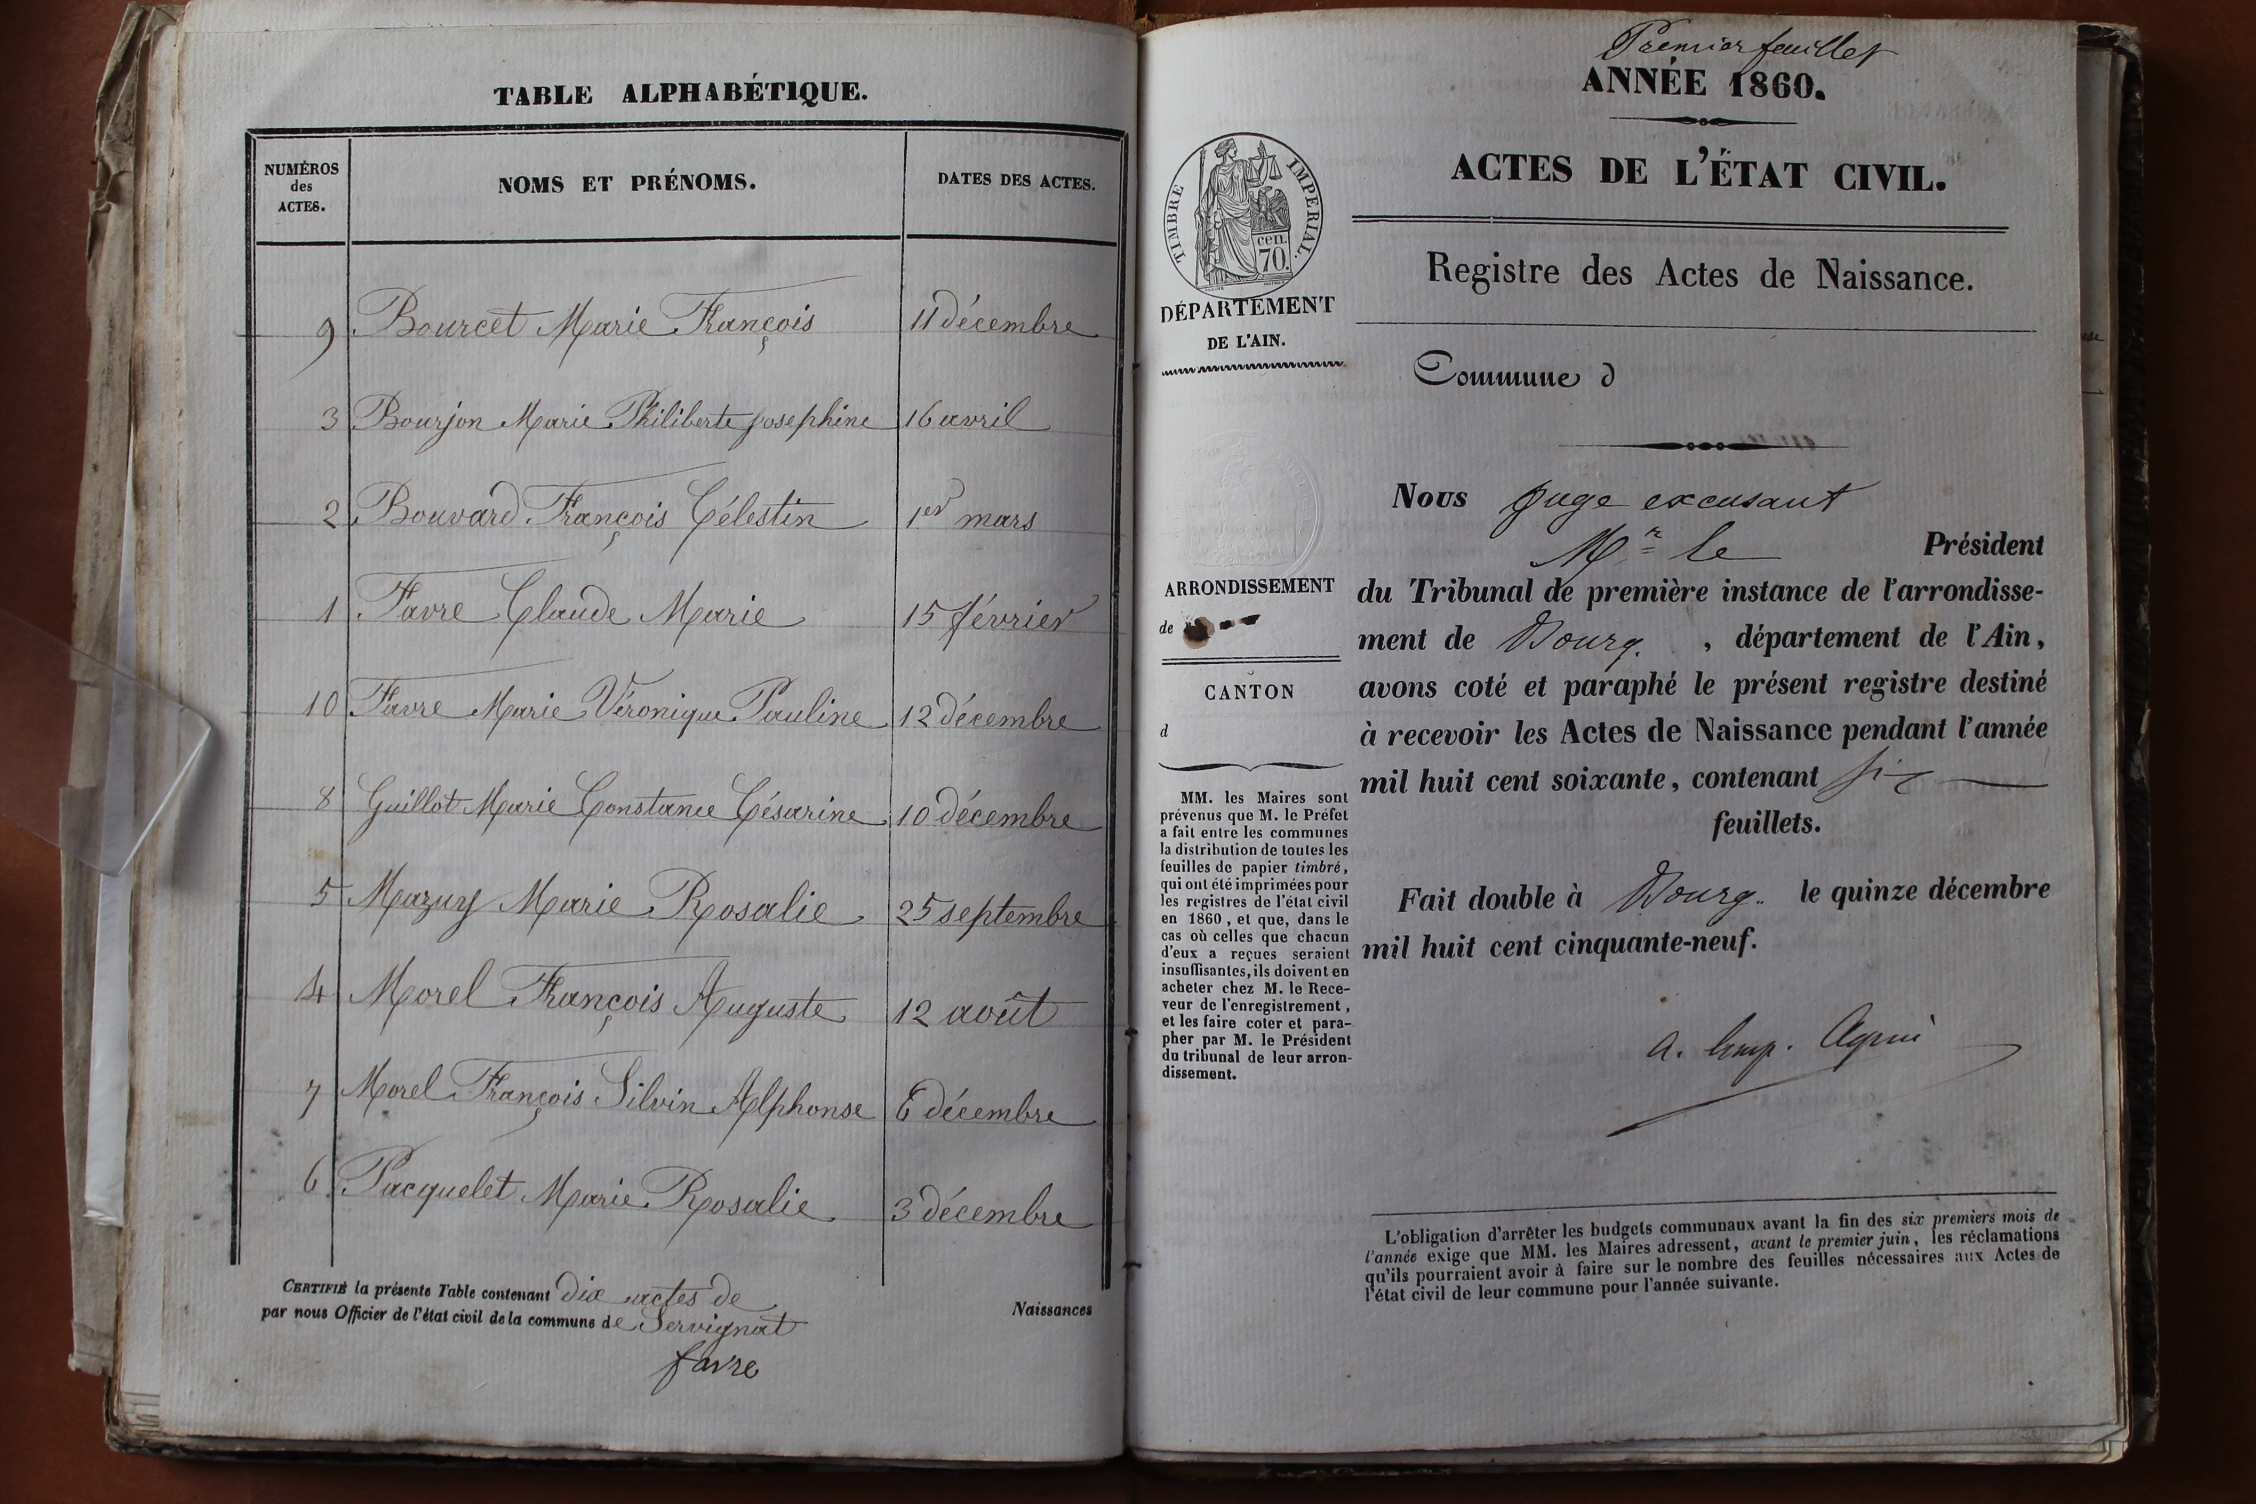 TABLE ALPHABÉTIQUE.
NUMÉROS
des
ACTES.
NOMS ET PRÉNOMS.
DATES DES ACTES.
9 Bourcet Marie François 11 décembre
3 Bourjon Marie Philiberte josephine 16 avril
2 Bouvard François Célestin 1er mars
1 Favre Claude Marie 15 février
10 Favre Marie Véronique Pauline 12 décembre
8 Guillot Marie Constance Césarine 10 décembre
5 Mazuy Marie Rosalie 25 septembre
4 Morel François Auguste 12 août
7 Morel François Silvin Alphonse 6 décembre
6 Pacquelet Marie Rosalie 3 décembre
CERTIFIÉ la présente Table contenant dix actes de Naissances
par nous Officier de l'état civil de la commune de Servignat
favre
Premier feuillet
ANNÉE 1860.
ACTES DE L'ÉTAT CIVIL.
Registre des Actes de Naissance.
TIMBRE IMPERIAL.
cen.
70.
DÉPARTEMENT
DE L'AIN.
Commune d
ARRONDISSEMENT
de
CANTON
d
MM. les Maires sont
prévenus que M. le Préfet
a fait entre les communes
la distribution de toutes les
feuilles de papier timbré,
qui ont été imprimées pour
les registres de l'état civil
en 1860, et que, dans le
cas où celles que chacun
d'eux a reçues seraient
insuffisantes, ils doivent en
acheter chez M. le Rece-
veur de l'enregistrement,
et les faire coter et para-
pher par M. le Président
du tribunal de leur arron-
dissement.
Nous juge excusant
Mr le Président
du Tribunal de première instance de l'arrondisse-
ment de Bourg. , département de l'Ain,
avons coté et paraphé le présent registre destiné
à recevoir les Actes de Naissance pendant l'année
mil huit cent soixante, contenant six
feuillets.
Fait double à Bourg le quinze décembre
mil huit cent cinquante-neuf.
L'obligation d'arrêter les budgets communaux avant la fin des six premiers mois de
l'année exige que MM. les Maires adressent, avant le premier juin, les réclamations
qu'ils pourraient avoir à faire sur le nombre des feuilles nécessaires aux Actes de
l'état civil de leur commune pour l'année suivante.